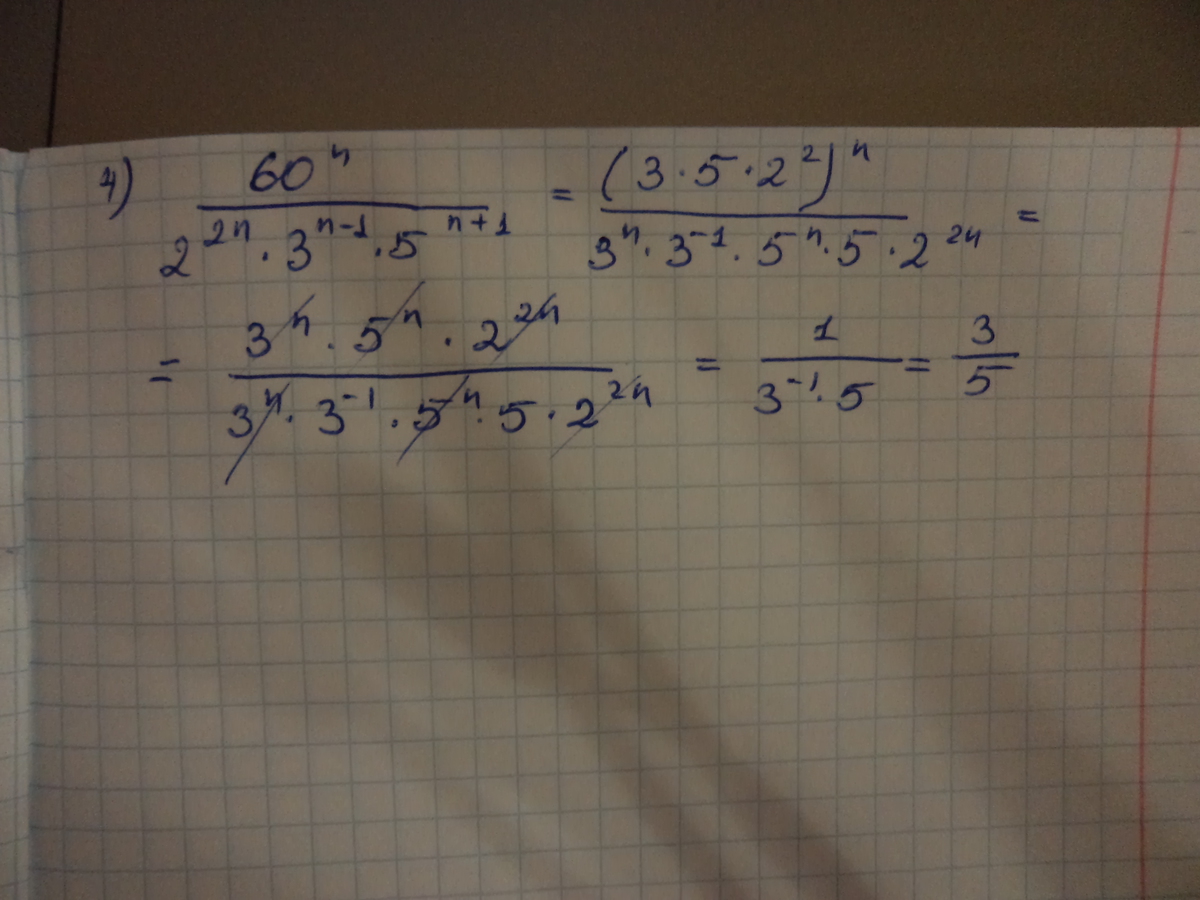 4) 60^n / (2^{2n} · 3^{n-1} · 5^{n+1}) = (3 · 5 · 2^2)^n / (3^n · 3^{-1} · 5^n · 5 · 2^{2n}) =
= (3^n · 5^n · 2^{2n}) / (3^n · 3^{-1} · 5^n · 5 · 2^{2n}) = 1 / (3^{-1} · 5) = 3 / 5